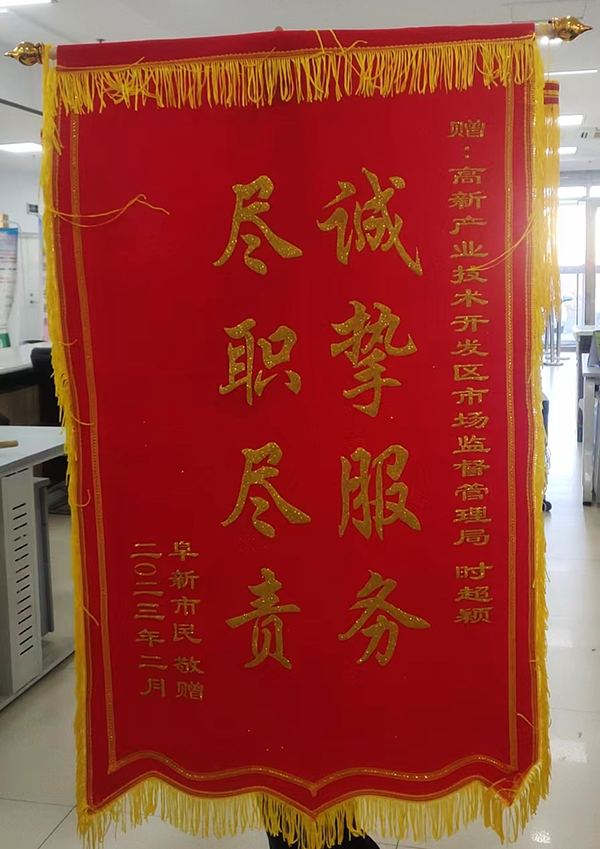 赠：高新产业技术开发区市场监督管理局 时超颖
诚挚服务
尽职尽责
阜新市民 敬赠
二〇二三年二月